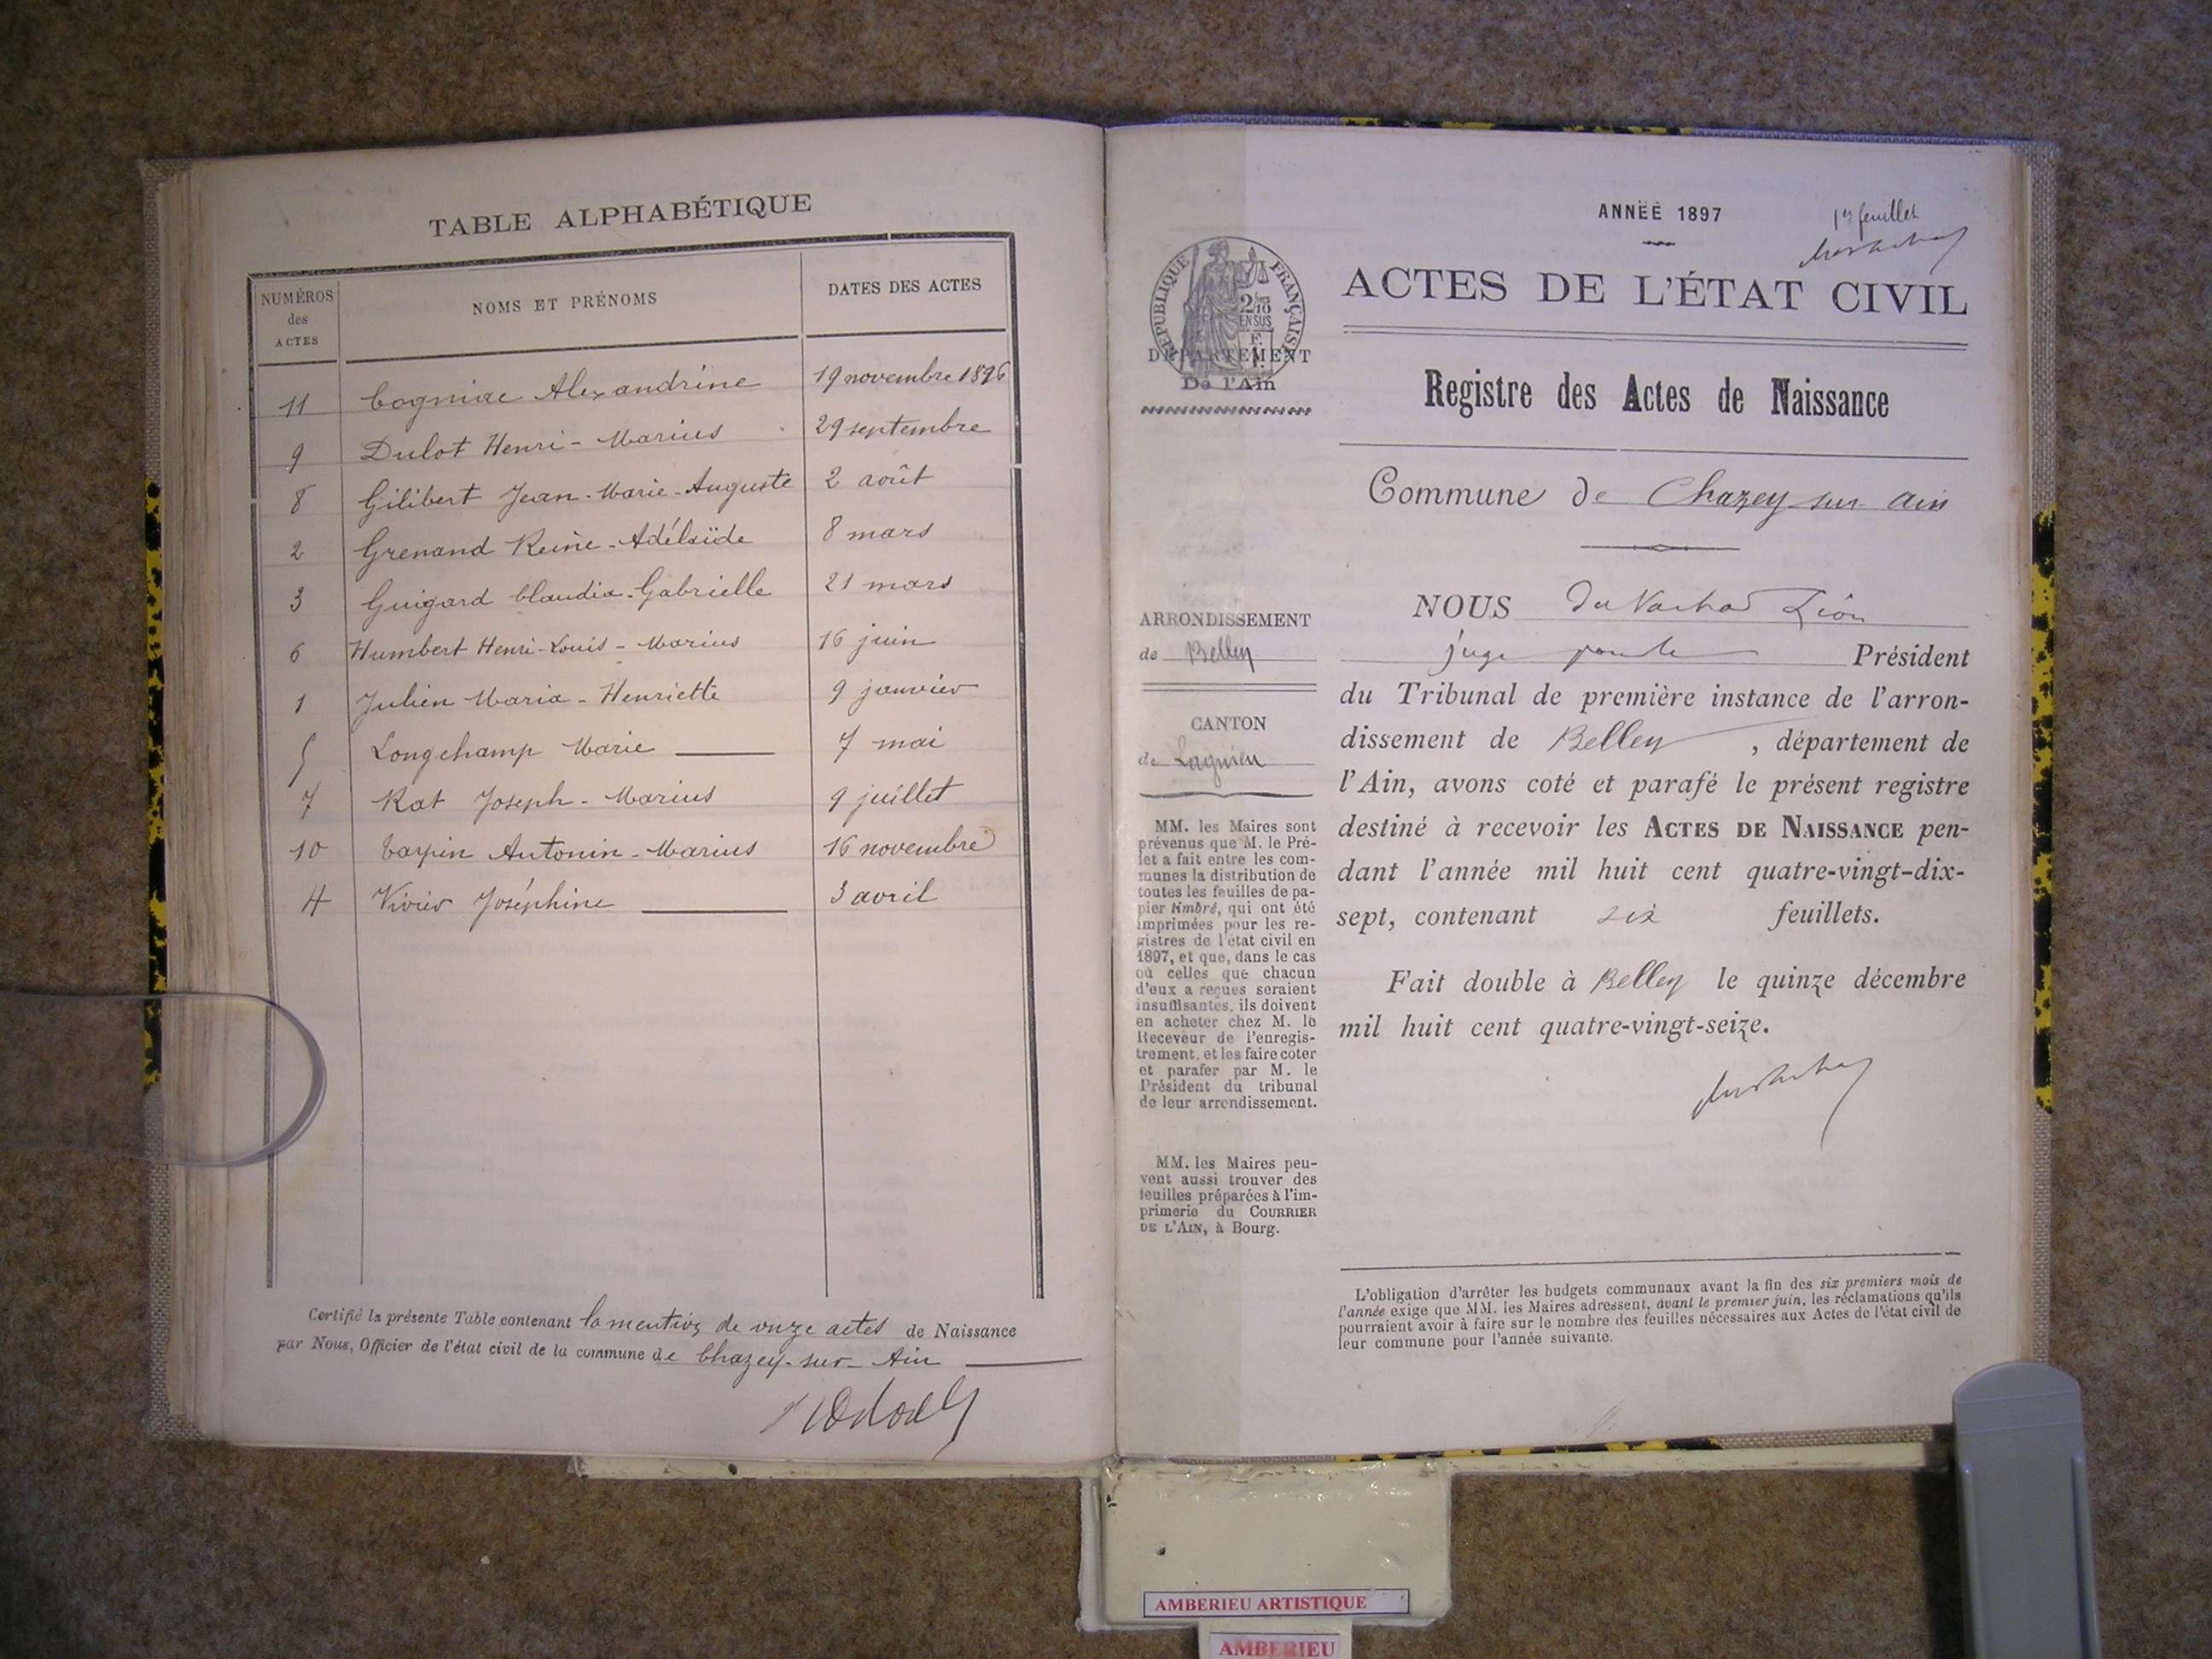 TABLE ALPHABÉTIQUE
NUMÉROS
des
ACTES
NOMS ET PRÉNOMS
DATES DES ACTES
11 Cogniac Alexandrine 19 novembre 1896
9 Dulot Henri-Marius 29 septembre
8 Gilibert Jean-Marie-Auguste 2 août
2 Grenand Reine-Adélaïde 8 mars
3 Guigard Claudia-Gabrielle 21 mars
6 Humbert Henri-Louis-Marius 16 juin
1 Julien Maria-Henriette 9 janvier
5 Longchamp Marie 7 mai
7 Rat Joseph-Marius 9 juillet
10 Tarpin Antonin-Marius 16 novembre
4 Vivier Joséphine 3 avril
Certifié la présente Table contenant la mention de onze actes de Naissance
par Nous, Officier de l'état civil de la commune de Chazey-sur-Ain
ANNÉE 1897
1er feuillet
RÉPUBLIQUE FRANÇAISE
2/10
EN SUS
DÉPARTEMENT
De l'Ain
ACTES DE L'ÉTAT CIVIL
Registre des Actes de Naissance
Commune de Chazey sur Ain
ARRONDISSEMENT
de Belley
CANTON
de Lagnieu
MM. les Maires sont
prévenus que M. le Pré-
fet a fait entre les com-
munes la distribution de
toutes les feuilles de pa-
pier timbré, qui ont été
imprimées pour les re-
gistres de l'état civil en
1897, et que, dans le cas
où celles que chacun
d'eux a reçues seraient
insuffisantes, ils doivent
en acheter chez M. le
Receveur de l'enregis-
trement, et les faire coter
et parafer par M. le
Président du tribunal
de leur arrondissement.
MM. les Maires peu-
vent aussi trouver des
feuilles préparées à l'im-
primerie du COURRIER
DE L'AIN, à Bourg.
NOUS Léon
juge Président
du Tribunal de première instance de l'arron-
dissement de Belley, département de
l'Ain, avons coté et parafé le présent registre
destiné à recevoir les ACTES DE NAISSANCE pen-
dant l'année mil huit cent quatre-vingt-dix-
sept, contenant six feuillets.
Fait double à Belley le quinze décembre
mil huit cent quatre-vingt-seize.
L'obligation d'arrêter les budgets communaux avant la fin des six premiers mois de
l'année exige que MM. les Maires adressent, avant le premier juin, les réclamations qu'ils
pourraient avoir à faire sur le nombre des feuilles nécessaires aux Actes de l'état civil de
leur commune pour l'année suivante.
AMBERIEU ARTISTIQUE
AMBERIEU